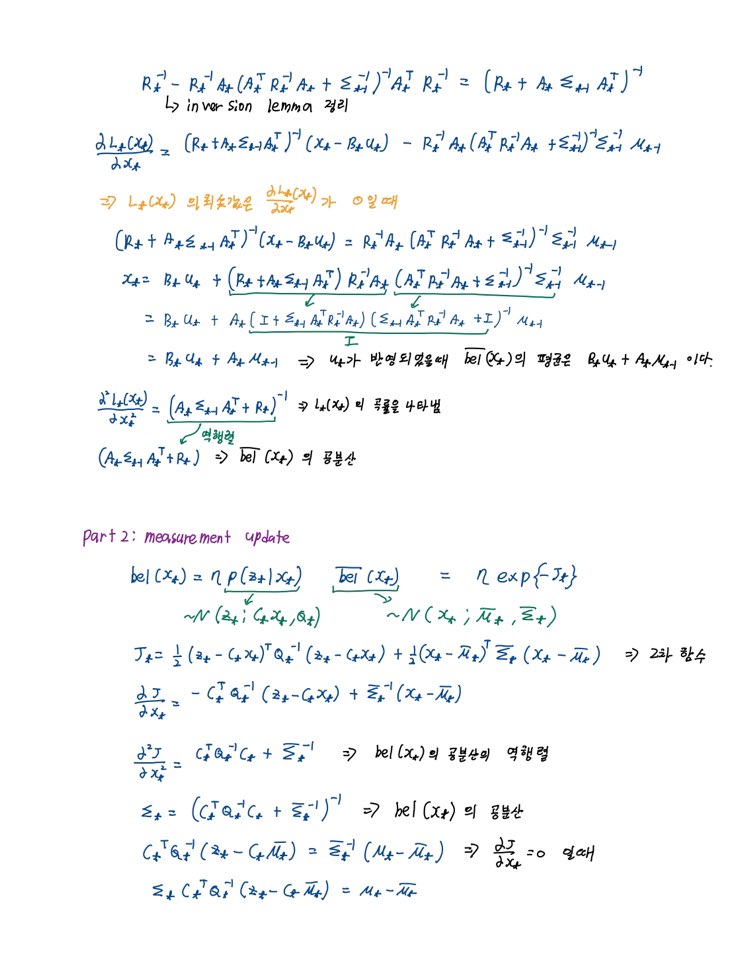 Rₜ⁻¹ - Rₜ⁻¹Aₜ(AₜᵀRₜ⁻¹Aₜ + Σₜ₋₁⁻¹)⁻¹AₜᵀRₜ⁻¹ = (Rₜ + AₜΣₜ₋₁Aₜᵀ)⁻¹
↳ inversion lemma 정리
∂Lₜ(xₜ)/∂xₜ = (Rₜ + AₜΣₜ₋₁Aₜᵀ)⁻¹(xₜ - Bₜuₜ) - Rₜ⁻¹Aₜ(AₜᵀRₜ⁻¹Aₜ + Σₜ₋₁⁻¹)⁻¹Σₜ₋₁⁻¹ μₜ₋₁
⇒ Lₜ(xₜ) 의 최솟값은 ∂Lₜ(xₜ)/∂xₜ 가 0일때
(Rₜ + AₜΣₜ₋₁Aₜᵀ)⁻¹(xₜ - Bₜuₜ) = Rₜ⁻¹Aₜ(AₜᵀRₜ⁻¹Aₜ + Σₜ₋₁⁻¹)⁻¹Σₜ₋₁⁻¹ μₜ₋₁
xₜ = Bₜuₜ + (Rₜ + AₜΣₜ₋₁Aₜᵀ)Rₜ⁻¹Aₜ(AₜᵀRₜ⁻¹Aₜ + Σₜ₋₁⁻¹)⁻¹Σₜ₋₁⁻¹ μₜ₋₁
= Bₜuₜ + Aₜ(I + Σₜ₋₁AₜᵀRₜ⁻¹Aₜ)(Σₜ₋₁AₜᵀRₜ⁻¹Aₜ + I)⁻¹ μₜ₋₁
I
= Bₜuₜ + Aₜμₜ₋₁ ⇒ uₜ가 반영되었을때 b̅e̅l̅(xₜ)의 평균은 Bₜuₜ + Aₜμₜ₋₁ 이다.
∂²Lₜ(xₜ)/∂xₜ² = (AₜΣₜ₋₁Aₜᵀ + Rₜ)⁻¹ ⇒ Lₜ(xₜ) 의 곡률을 나타냄
역행렬
(AₜΣₜ₋₁Aₜᵀ + Rₜ) ⇒ b̅e̅l̅(xₜ) 의 공분산
part 2: measurement update
bel(xₜ) = η p(zₜ|xₜ) b̅e̅l̅(xₜ) = η exp{-Jₜ}
~N(zₜ; Cₜxₜ, Qₜ) ~N(xₜ; μ̅ₜ, Σ̅ₜ)
Jₜ = 1/2 (zₜ - Cₜxₜ)ᵀQₜ⁻¹(zₜ - Cₜxₜ) + 1/2(xₜ - μ̅ₜ)ᵀ Σ̅ₜ (xₜ - μ̅ₜ) ⇒ 2차 함수
∂J/∂xₜ = -CₜᵀQₜ⁻¹(zₜ - Cₜxₜ) + Σ̅ₜ⁻¹(xₜ - μ̅ₜ)
∂²J/∂xₜ² = CₜᵀQₜ⁻¹Cₜ + Σ̅ₜ⁻¹ ⇒ bel(xₜ)의 공분산의 역행렬
Σₜ = (CₜᵀQₜ⁻¹Cₜ + Σ̅ₜ⁻¹)⁻¹ ⇒ bel(xₜ) 의 공분산
CₜᵀQₜ⁻¹(zₜ - Cₜμ̅ₜ) = Σ̅ₜ⁻¹(μₜ - μ̅ₜ) ⇒ ∂J/∂xₜ = 0 일때
ΣₜCₜᵀQₜ⁻¹(zₜ - Cₜμ̅ₜ) = μₜ - μ̅ₜ